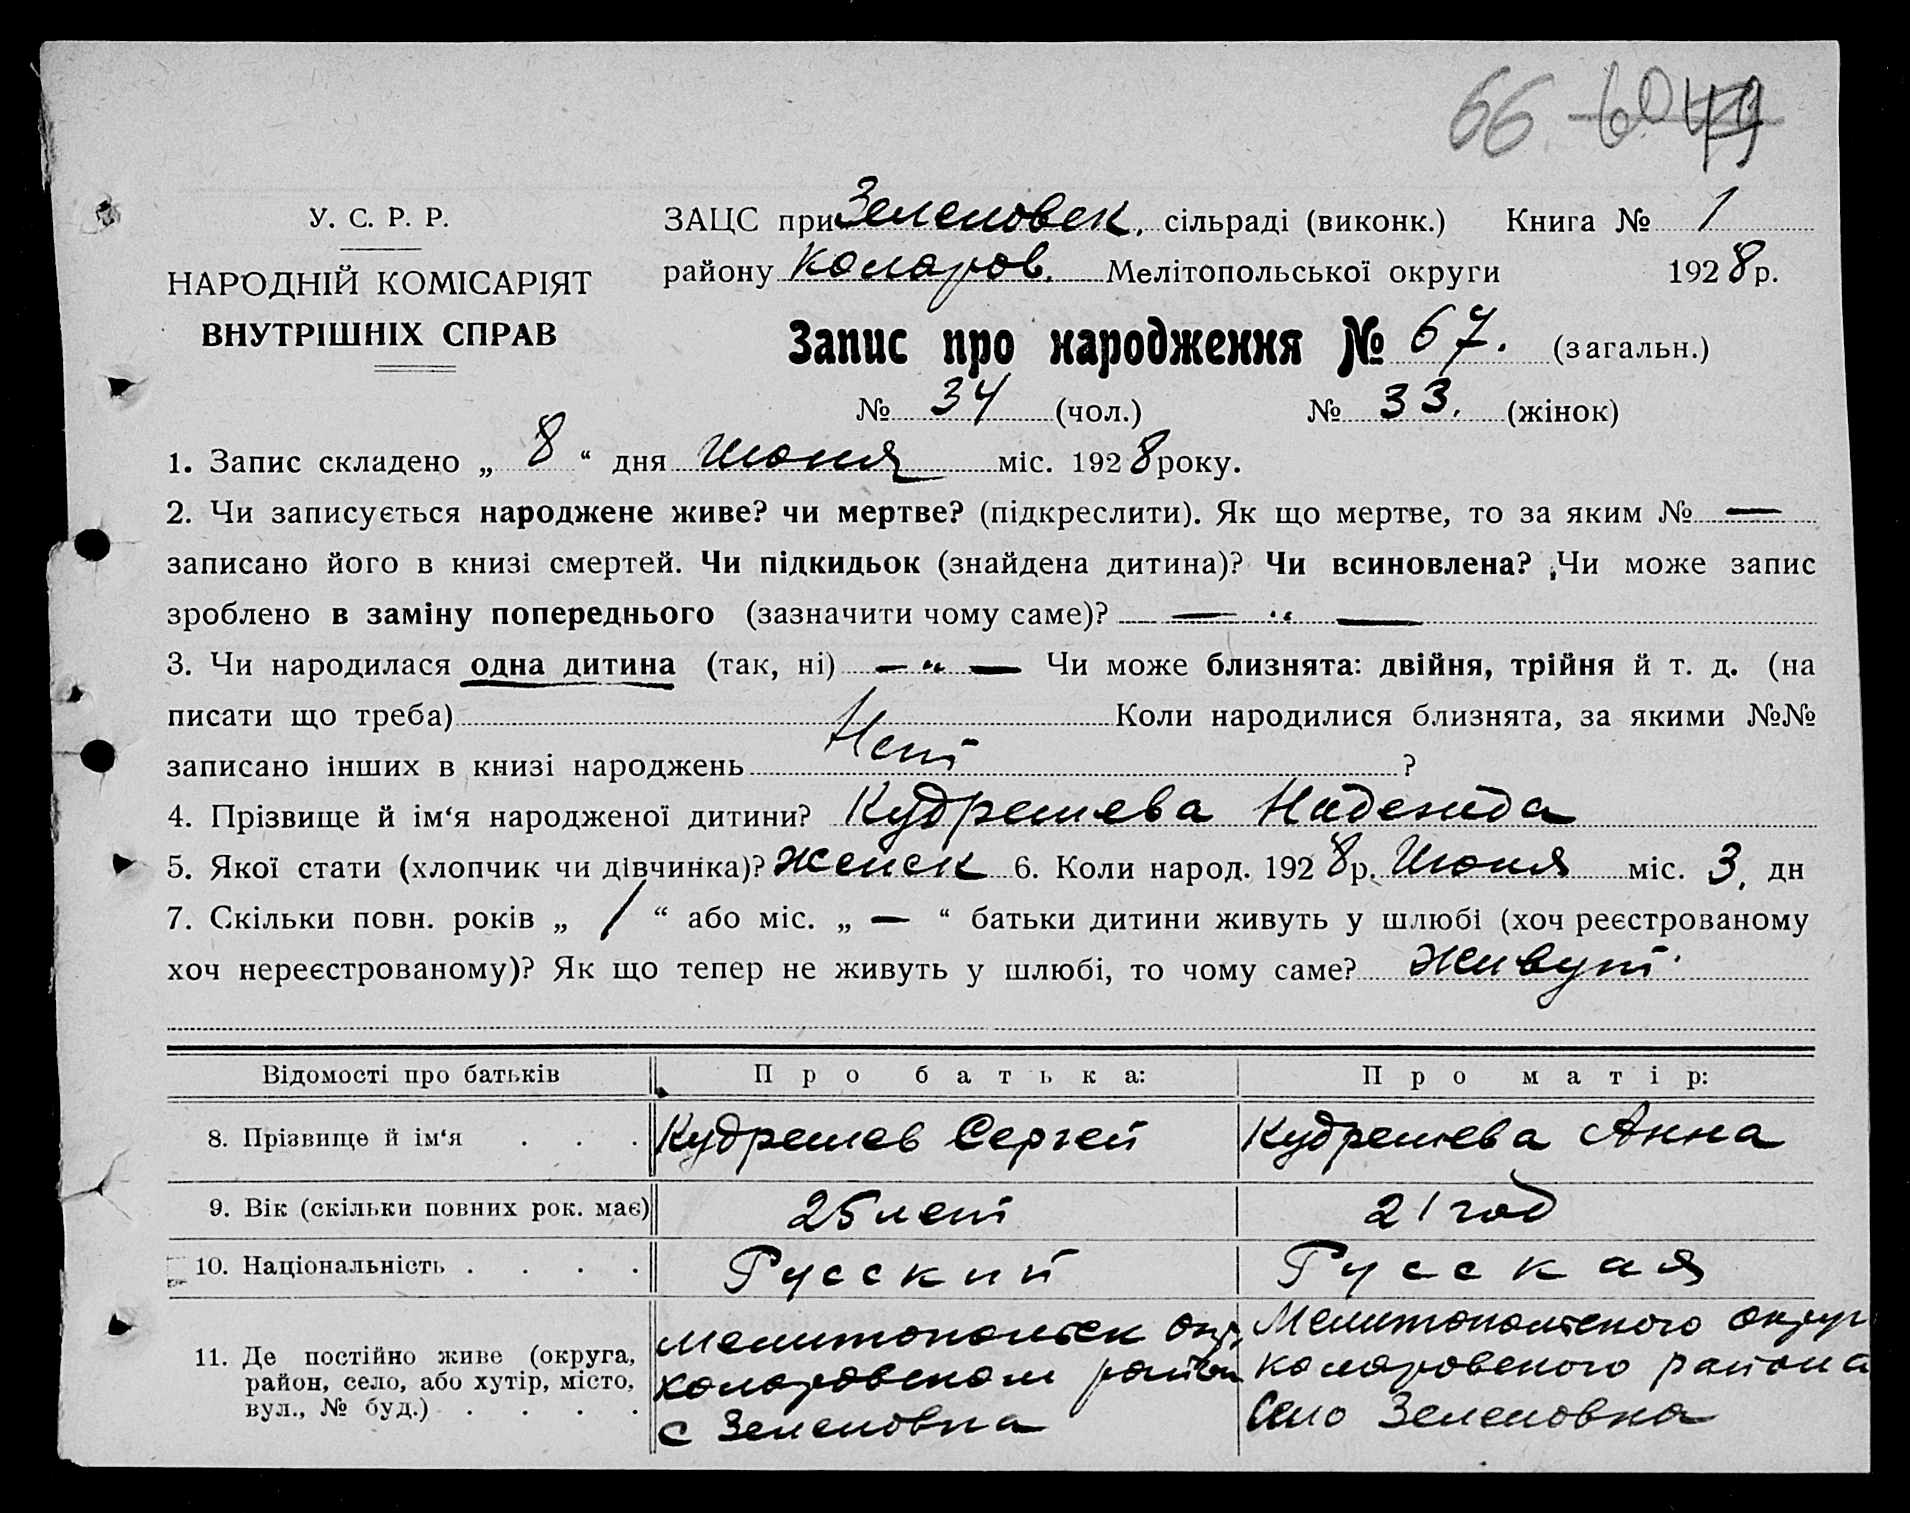 66 60 49
У. С. Р. Р.
НАРОДНІЙ КОМІСАРІЯТ
ВНУТРІШНІХ СПРАВ
ЗАЦС при Зеленовск. сільраді (виконк.) Книга № 1
району Коларов. Мелітопольської округи 1928 р.
Запис про народження № 67. (загальн.)
№ 34 (чол.) № 33. (жінок)
1. Запис складено „ 8 “ дня Июня міс. 1928 року.
2. Чи записується народжене живе? чи мертве? (підкреслити). Як що мертве, то за яким № —
записано його в книзі смертей. Чи підкидьок (знайдена дитина)? Чи всиновлена? Чи може запис
зроблено в заміну попереднього (зазначити чому саме)? — „ —
3. Чи народилася одна дитина (так, ні) — „ — Чи може близнята: двійня, трійня й т. д. (на
писати що треба) Коли народилися близнята, за якими №№
записано інших в книзі народжень Нет ?
4. Прізвище й ім‘я народженої дитини? Кудрешева Надежда
5. Якої стати (хлопчик чи дівчинка)? Женск 6. Коли народ. 1928 р. Июня міс. 3, дн
7. Скільки повн. років „ 1 “ або міс. „ — “ батьки дитини живуть у шлюбі (хоч реєстрованому
хоч нереєстрованому)? Як що тепер не живуть у шлюбі, то чому саме? Живут.
Відомості про батьків Про батька: Про матір:
8. Прізвище й ім‘я . . . Кудрешев Сергей Кудрешева Анна
9. Вік (скільки повних рок. має) 25 лет 21 год
10. Національність . . . . Русский Русская
11. Де постійно живе (округа, район, село, або хутір, місто, вул., № буд.) . . . .
Мелитопольск окр.
Коларовском район
с Зеленовка
Мелитопольского округ
Коларовского района
Село Зеленовка